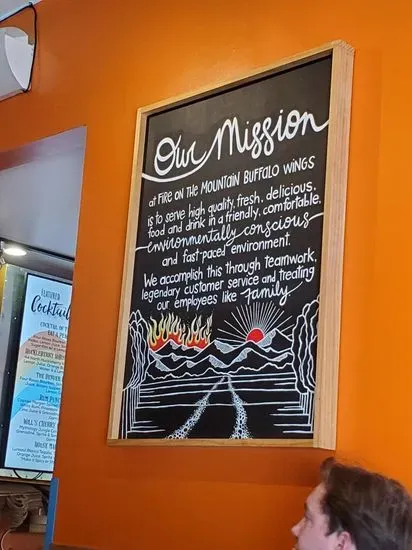 Our Mission
at FIRE ON THE MOUNTAIN BUFFALO WINGS
is to serve high quality, fresh, delicious,
food and drink in a friendly, comfortable,
environmentally conscious
and fast-paced environment.
We accomplish this through teamwork,
legendary customer service and treating
our employees like family
FEATURED
Cocktail
COCKTAIL OF
HUCKLEBERRY
RUM PUN
WILL'S CHERRY
HOUSE MA